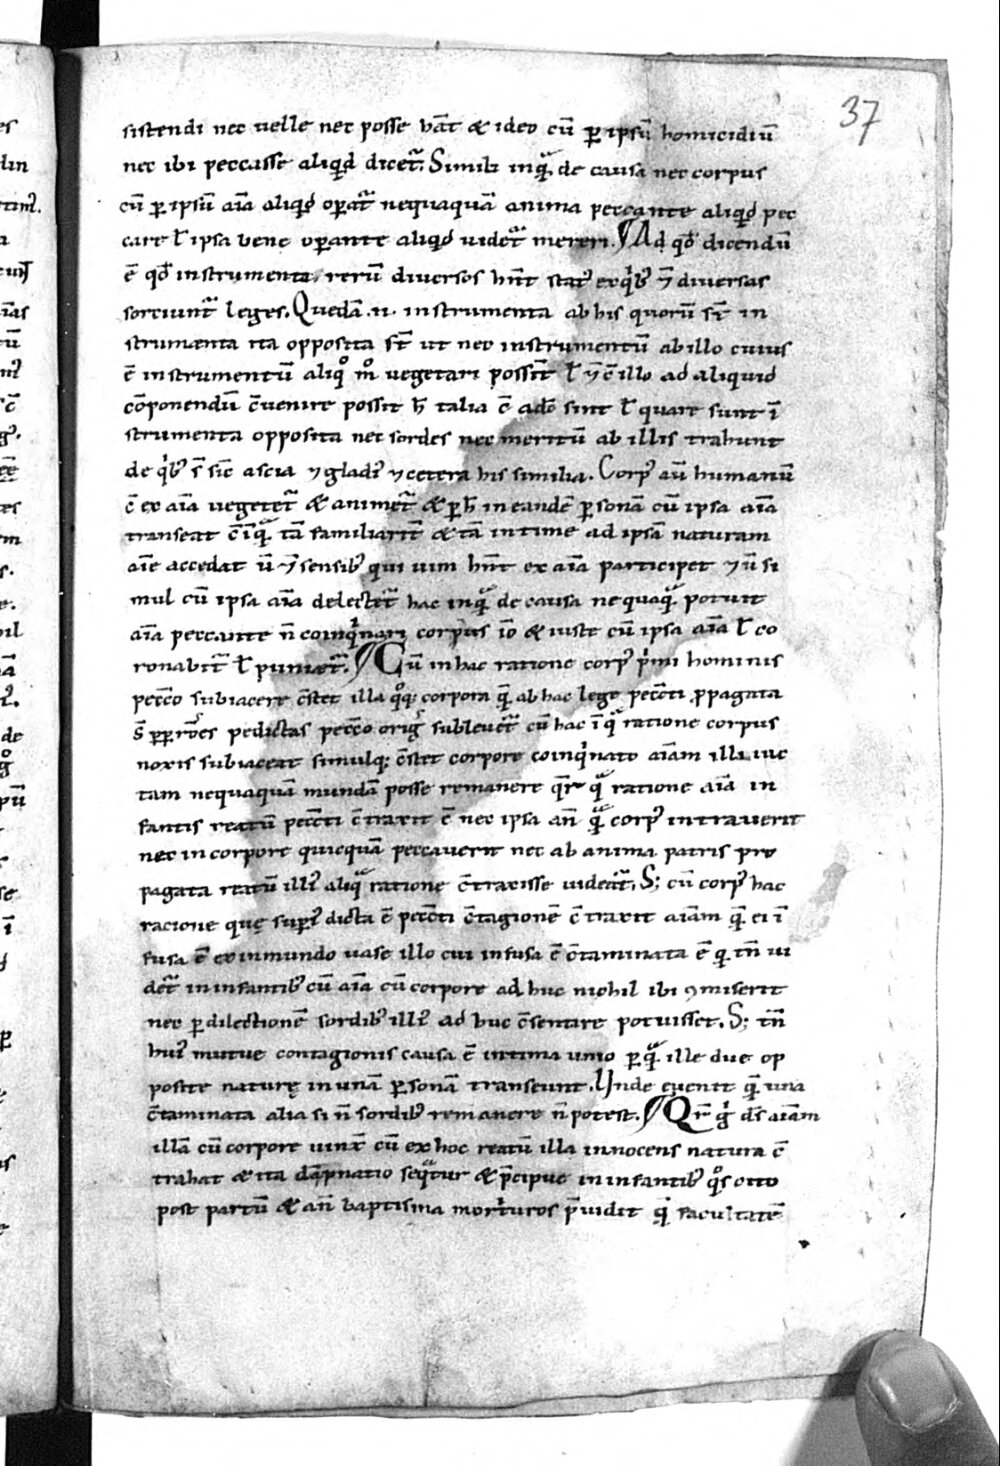 37
sistendi nec uelle nec posse hāt & ideo cū ꝑ ipsū homicidiū
nec ibi peccasse aliqͥd dicet᷑. Simili inqͣ de causa nec corpus
cū ꝑ ipsū aīa aliqͥd oꝑat᷑ nequaquā anima peccante aliqͥd pec
care ł ipsa bene oꝑante aliqͥd uidet᷑ mereri. ¶ Ad qđ dicendū
ē qđ instrumenta rerū diuersos hn̄t stat᷒ ex qͥb᷒ ⁊ diuersas
sortiunt᷑ leges. Quedā .n. instrumenta ab his quorū st̄ in
strumenta ita opposita st̄ ut nec instrumentū ab illo cuius
ē instrumentū aliqͦ mͦ uegetari possit ł cū illo ad aliquid
cōponendū c̄uenire possit h̄ talia ē adō sint ł quare sunt ī
strumenta opposita nec sordes nec meritū ab illis trahunt
de qͥb᷒ s̄ sic̄ ascia ⁊ gladi᷒ ⁊ cetera his similia. Corp᷒ aū humanū
c̄ ex aīa uegetet᷑ & animet᷑ & ꝑ h̄ in eandē ꝑsonā cū ipsa aīa
transeat c̄ īqͣ tā familiarit̄ & tā intime ad ipsā naturam
aīe accedat ū ⁊ sensib᷒ qui uim hn̄t ex aīa participet ⁊ ū si
mul cū ipsa aīa delectet᷑ hac inqͣ de causa nequaqͣ potuit
aīa peccante n̄ coinqͥnari corpus iō & iuste cū ipsa aīa ł co
ronabit᷑ ł puniet᷑. ¶ Cū in hac ratione corp᷒ pͥmi hominis
pec̄co subiacere c̄stet illa qͦq; corpora q̄ ab hac lege pecc̄ti ꝓpagata
noxis subiaceat simulq; c̄stet corpore coinqͥnato aīam illi iuc
tam nequaquā mundā posse remanere qͥrit᷑ qͣ ratione aīa in
fantis reatū pecc̄ti c̄traxit c̄ nec ipsa an̄ qͣ corp᷒ intrauerit
nec in corpore quicquā peccauerit nec ab anima patris pro
pagata reatū illi᷒ aliqͣ ratione c̄traxisse uideat᷑. S; cū corp᷒ hac
racione quę supͥ dicta ē pecc̄ti c̄tagionē c̄traxit aīam q̄ ei ī
fusa ē ex inmundo uase illo cui infusa ē c̄taminata ē q tn̄ ui
det᷑ in infantib᷒ cū aīa cū corpore ad huc nichil ibi ꝯmiserit
nec ꝑ dilectionē sordib᷒ illi᷒ ad huc c̄sentire potuisset. S; tn̄
hui᷒ mutue contagionis causa ē intima unio ꝑ qͣ ille due op
posite naturę in unā ꝑsonā transeunt. Unde euenit q̄ una
c̄taminata alia si n̄ sordib᷒ remanere n̄ potest. ¶ Qr̄ gͥ ds̄ aīam
illā cū corpore uinxit cū ex hoc reatū illa innocens natura c̄
trahat & ita dāpnatio seqͣtur & p̄cipue in infantib᷒ qͦs otto
post partū & an̄ baptisma morituros p̄uidit qͥ facultatē